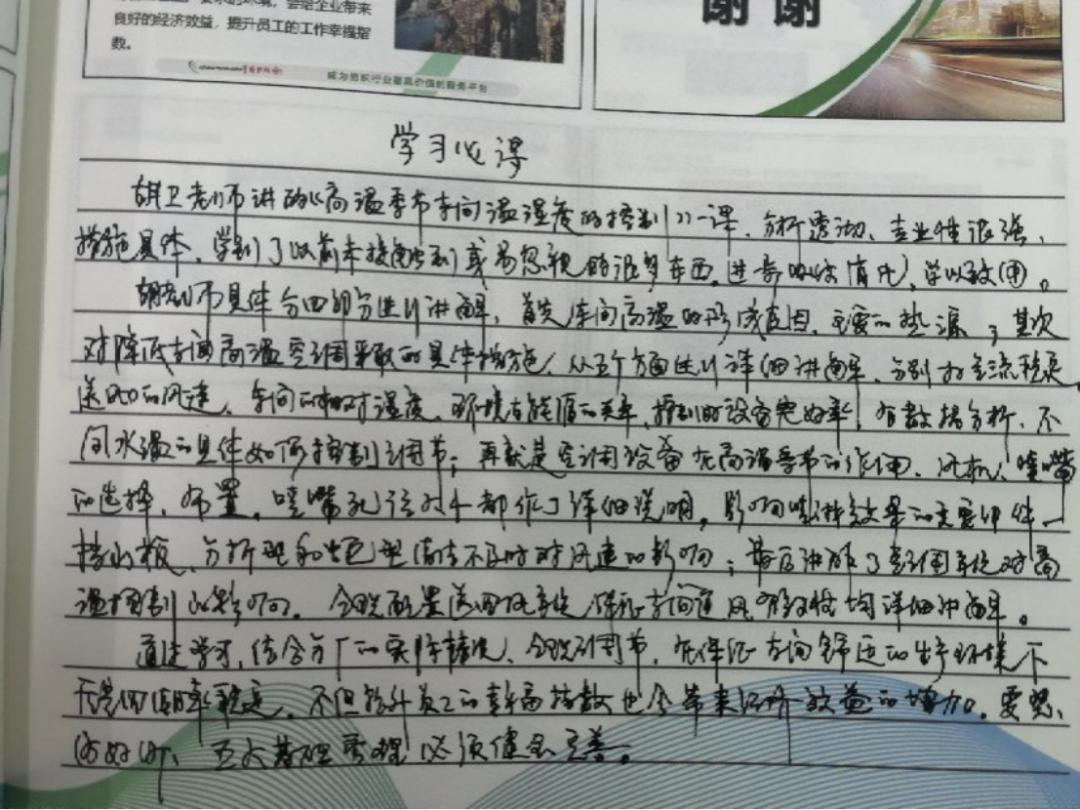 良好的经济效益，提升员工的工作幸福指
数。
成为纺织行业最具价值的服务平台
谢 谢
学习心得
胡卫老师讲的《高温季节车间温湿度的控制》一课，分析透彻、专业性很强、
措施具体，学到了以前未接触到或易忽视的很多东西，进一步吸收消化，学以致用。
胡老师具体分四部分进行讲解，首先车间高温的形成原因，主要的热源；其次
对降低车间高温空调采取的具体措施，从五个方面进行详细讲解，分别为
送风口的风速、车间的相对湿度、环境与能源的关系，控制的设备完好率，有数据分析，不
同水温的具体如何控制调节；再就是空调设备在高温季节的作用，风机、喷嘴
的选择，布置，喷嘴孔径大小都作了详细说明，影响喷淋效果的主要部件——
挡水板，分析型和型清洁不及时对风速的影响；最后讲解了空调系统对高
温控制的影响，合理配置送回风系统，保证车间通风均详细讲解。
通过学习，结合分厂的实际情况，合理调节，在保证车间舒适的生产环境下
不但提升员工的幸福指数也会带来经济效益的增加，要想
必须健全完善。